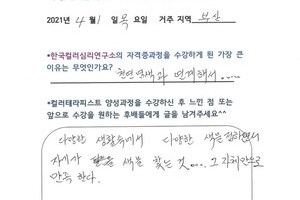 2021년 4월 1일 목요일 거주 지역 부산
•한국컬러심리연구소의 자격증과정을 수강하게 된 가장 큰
이유는 무엇인가요? 천연염색과 연계해서.....
•컬러테라피스트 양성과정을 수강하신 후 느낀 점 또는
앞으로 수강을 원하는 후배들에게 글을 남겨주세요^^
다양한 생활속에서 다양한 색을 접하면서
자기가 색을 찾는 것... 그 자체만으로
만족 한다.